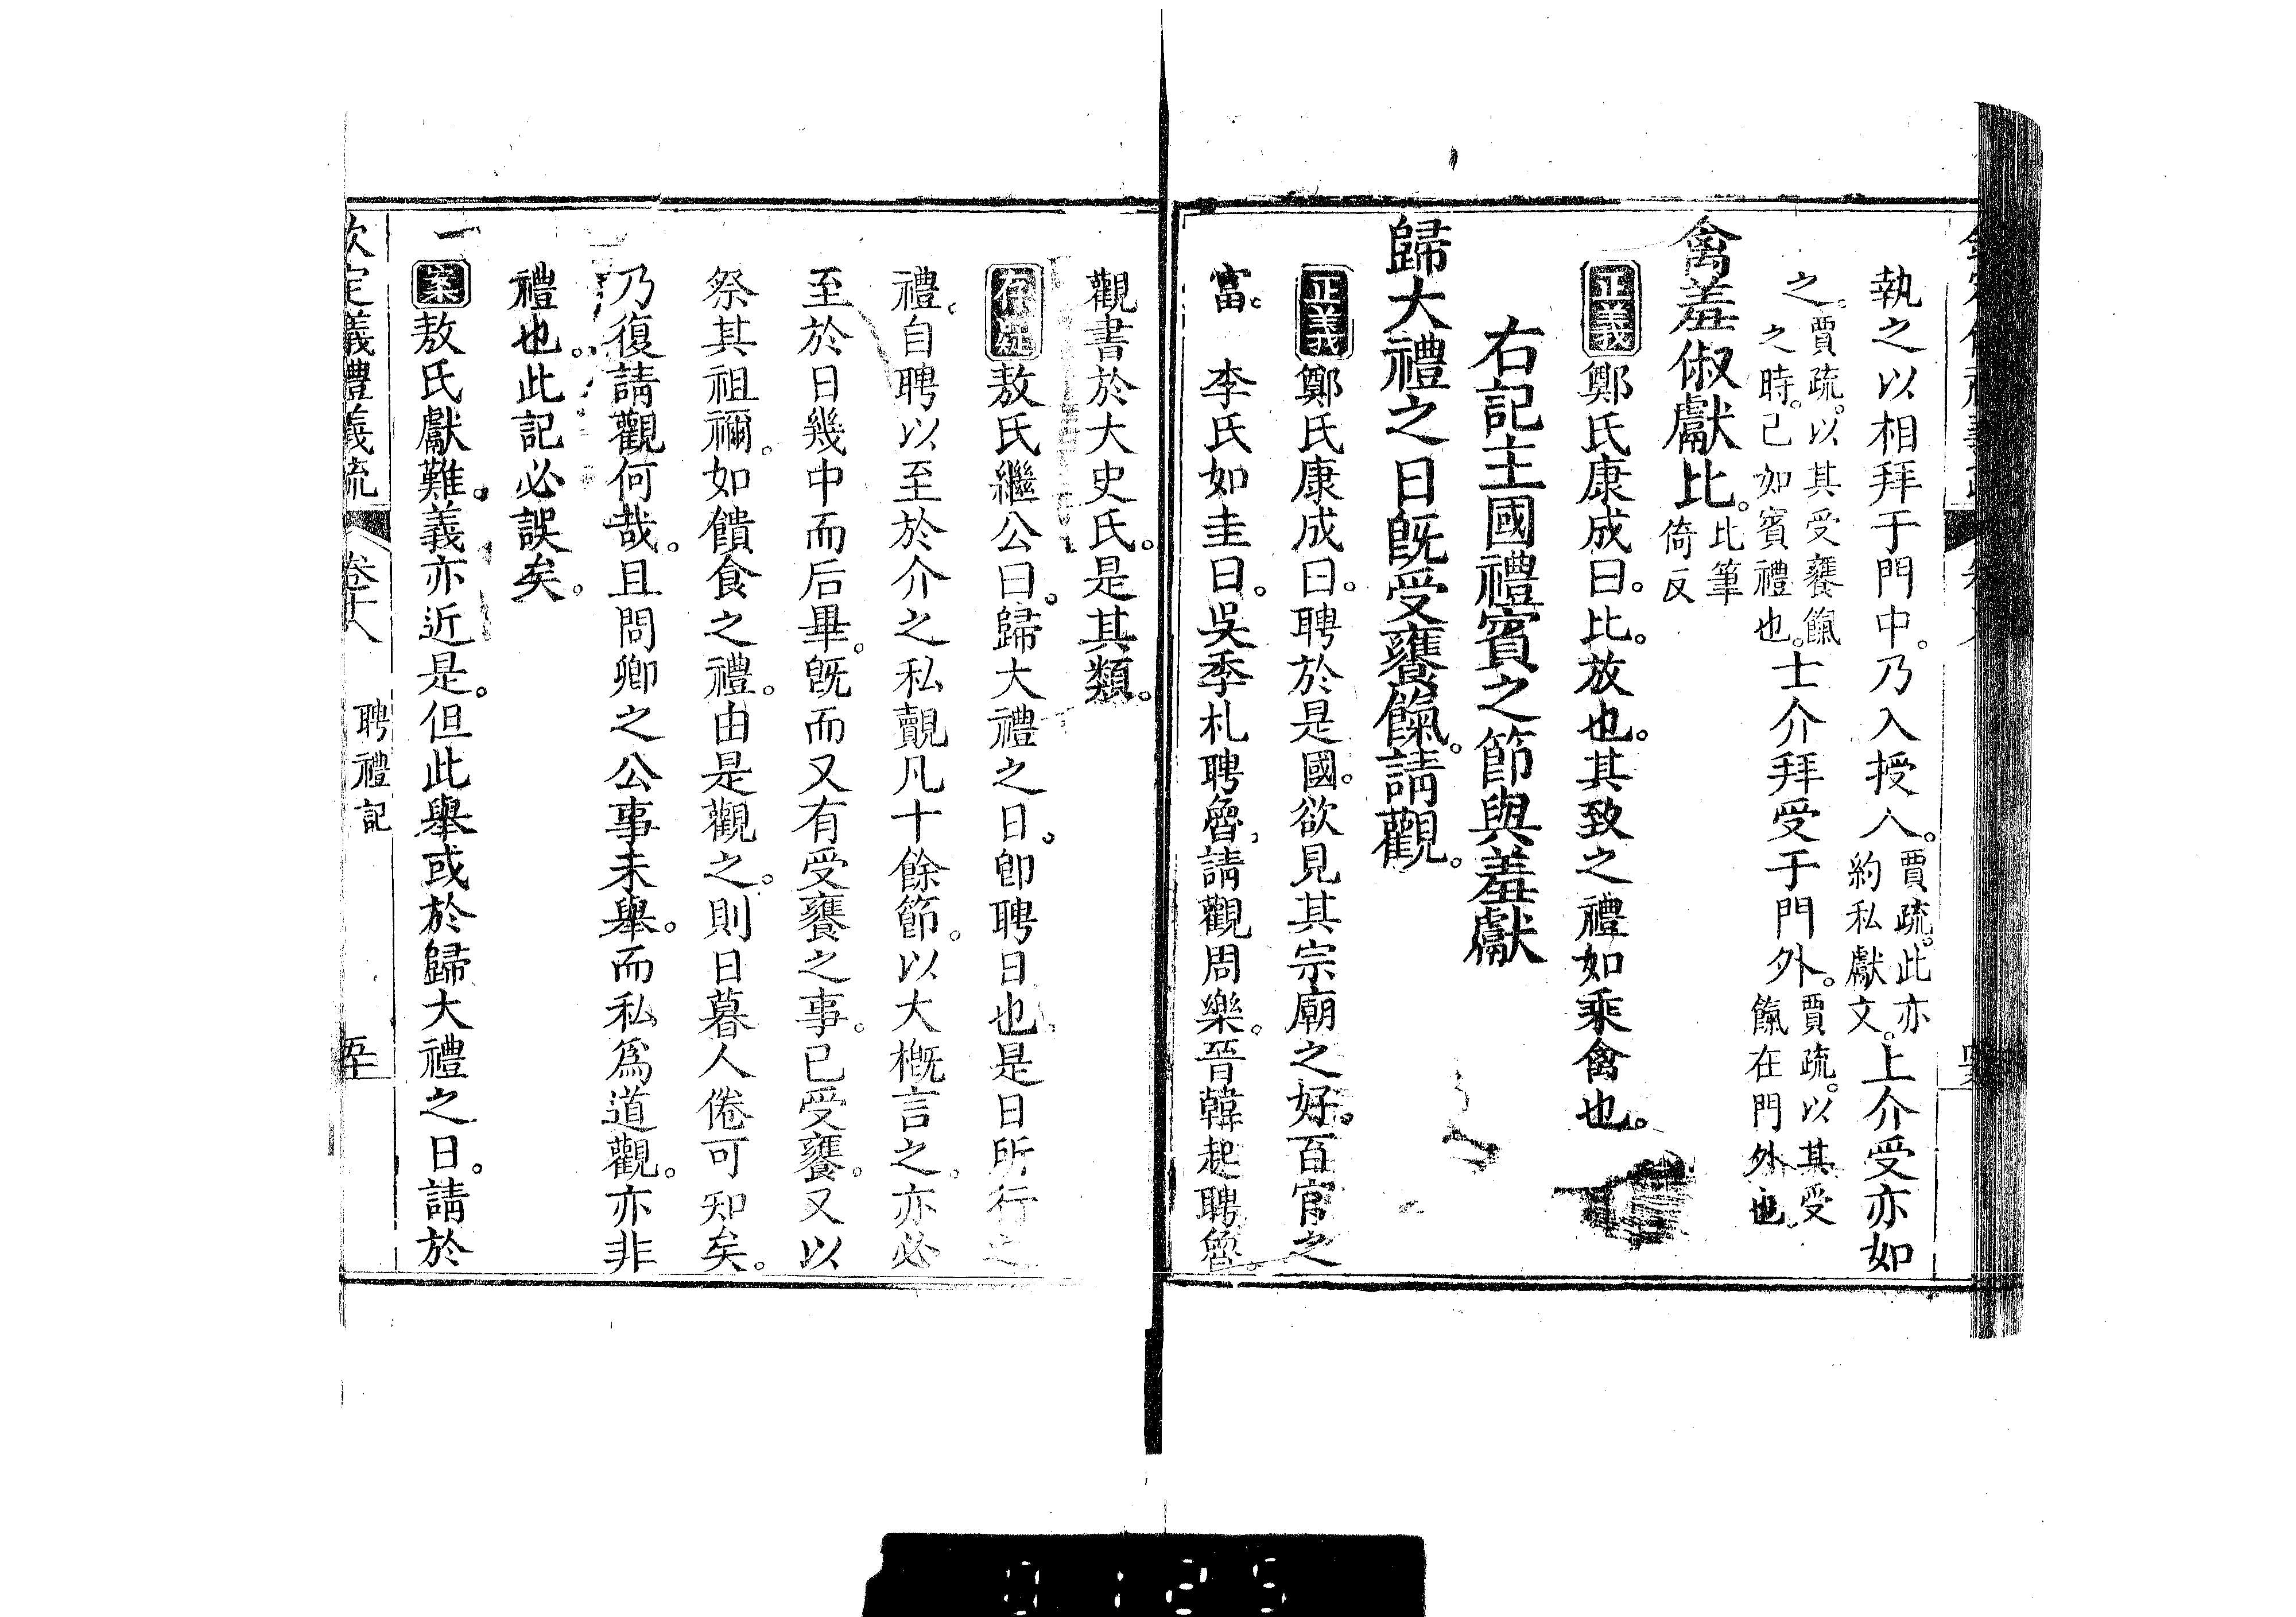 執之以相拜于門中。乃入授人。賈疏。此亦約私獻文。上介受亦如
之。賈疏。以其受饔餼之時。已如賓禮也。士介拜受于門外。賈疏。以其受餼在門外也。
禽羞俶獻比。比筆倚反
正義鄭氏康成曰。比。放也。其致之禮如乘禽也。
右記主國禮賓之節與羞獻
歸大禮之日旣受饔餼。請觀。
正義鄭氏康成曰。聘於是國。欲見其宗廟之好。百官之
富。 李氏如圭曰。吳季札聘魯。請觀周樂。晉韓起聘魯。
觀書於大史氏。是其類。
存疑敖氏繼公曰。歸大禮之日。卽聘日也。是日所行之
禮。自聘以至於介之私覿凡十餘節。以大槪言之。亦必
至於日幾中而后畢。旣而又有受饔之事。已受饔。又以
祭其祖禰。如饋食之禮。由是觀之。則日暮人倦可知矣。
乃復請觀何哉。且問卿之公事未舉。而私爲道觀。亦非
禮也。此記必誤矣。
案敖氏獻難。義亦近是。但此舉或於歸大禮之日。請於
欽定義禮義疏 卷十八 聘禮記 五十